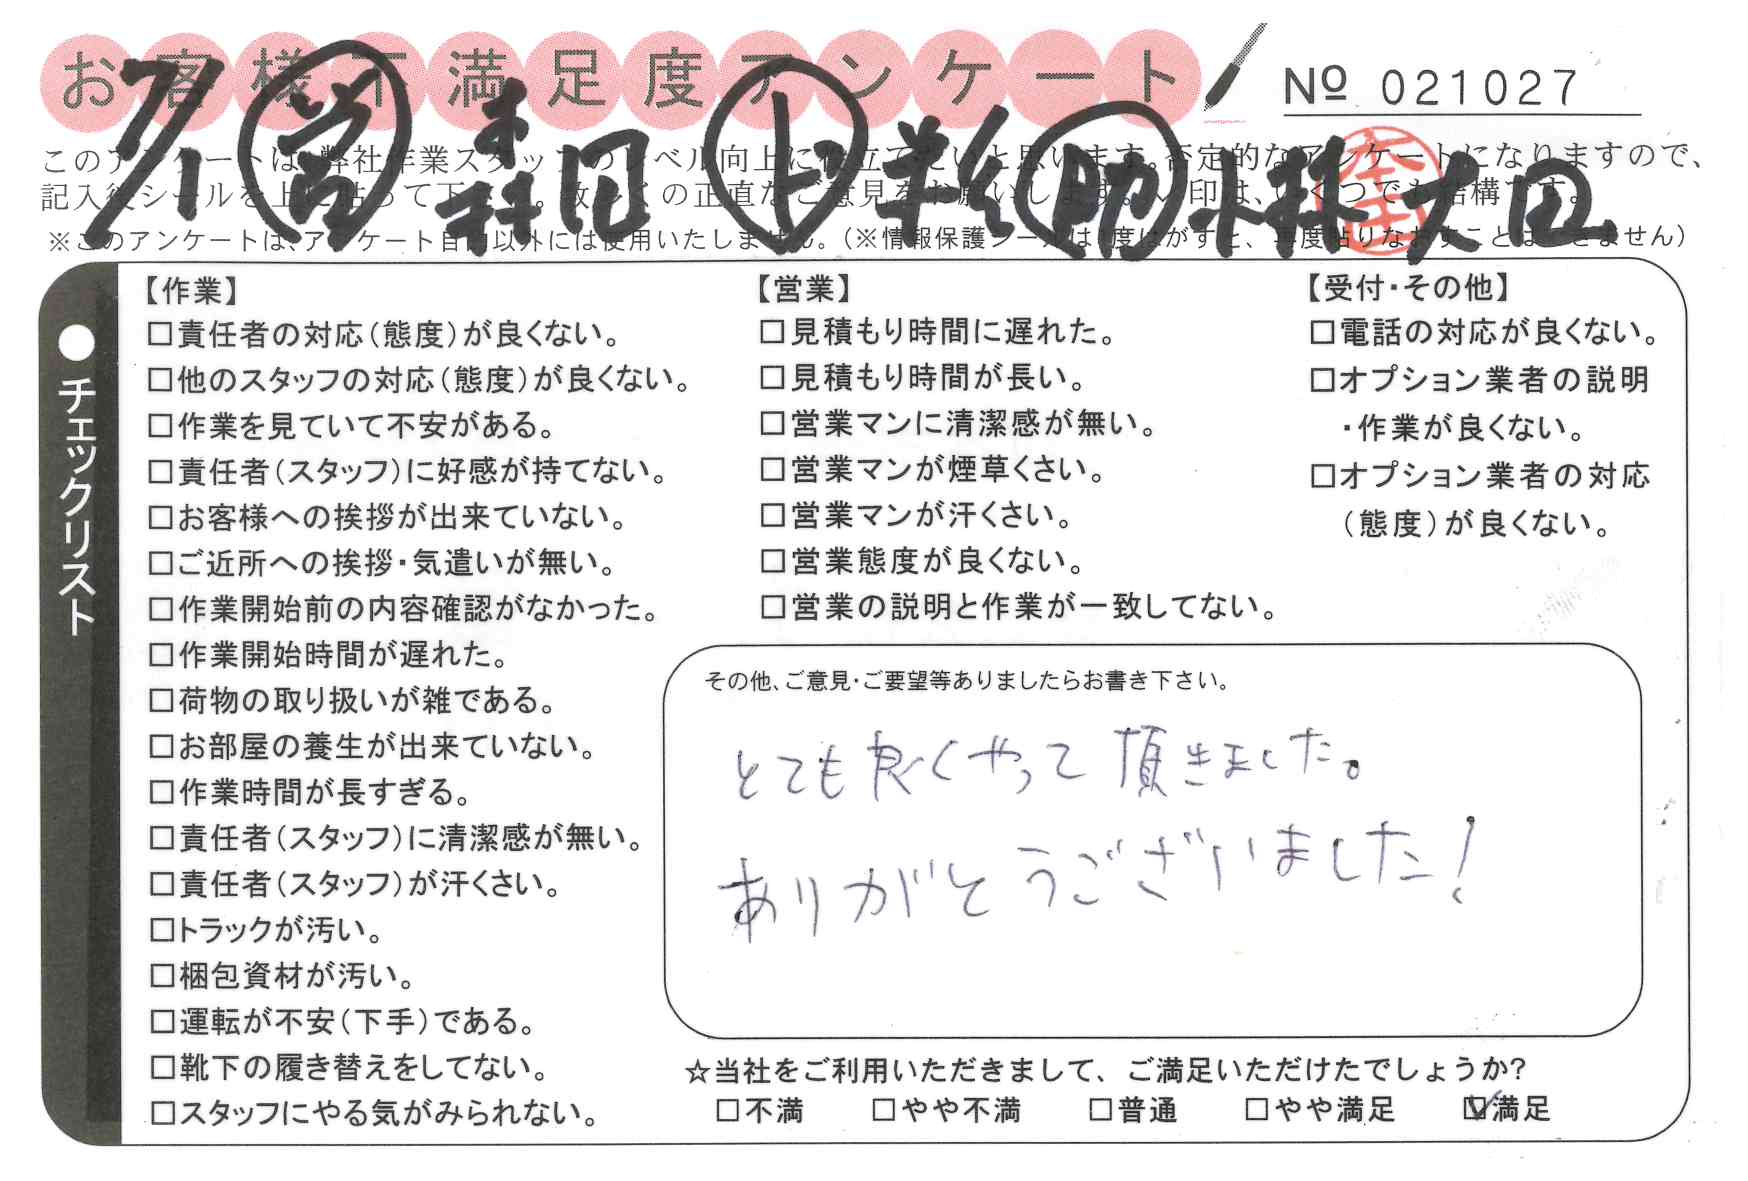 お客様不満足度アンケート
№ 021027
7/1 営 森田 ド 助 小林 太田
このアンケートは、弊社作業スタッフのレベル向上に役立てたいと思います。否定的なアンケートになりますので、
記入後シールを上に貼って下さい。数多くの正直なご意見をお願いします。✓印は、いくつでも結構です。
※このアンケートは、アンケート自由以外には使用いたしません。(※情報保護シールは1度はがすと、再度貼りなおすことはできません)
●チェックリスト
【作業】
□責任者の対応(態度)が良くない。
□他のスタッフの対応(態度)が良くない。
□作業を見ていて不安がある。
□責任者(スタッフ)に好感が持てない。
□お客様への挨拶が出来ていない。
□ご近所への挨拶・気遣いが無い。
□作業開始前の内容確認がなかった。
□作業開始時間が遅れた。
□荷物の取り扱いが雑である。
□お部屋の養生が出来ていない。
□作業時間が長すぎる。
□責任者(スタッフ)に清潔感が無い。
□責任者(スタッフ)が汗くさい。
□トラックが汚い。
□梱包資材が汚い。
□運転が不安(下手)である。
□靴下の履き替えをしてない。
□スタッフにやる気がみられない。
【営業】
□見積もり時間に遅れた。
□見積もり時間が長い。
□営業マンに清潔感が無い。
□営業マンが煙草くさい。
□営業マンが汗くさい。
□営業態度が良くない。
□営業の説明と作業が一致してない。
【受付・その他】
□電話の対応が良くない。
□オプション業者の説明
・作業が良くない。
□オプション業者の対応
(態度)が良くない。
その他、ご意見・ご要望等ありましたらお書き下さい。
とても良くやって頂きました。
ありがとうございました!
☆当社をご利用いただきまして、ご満足いただけたでしょうか?
□不満 □やや不満 □普通 □やや満足 ☑満足